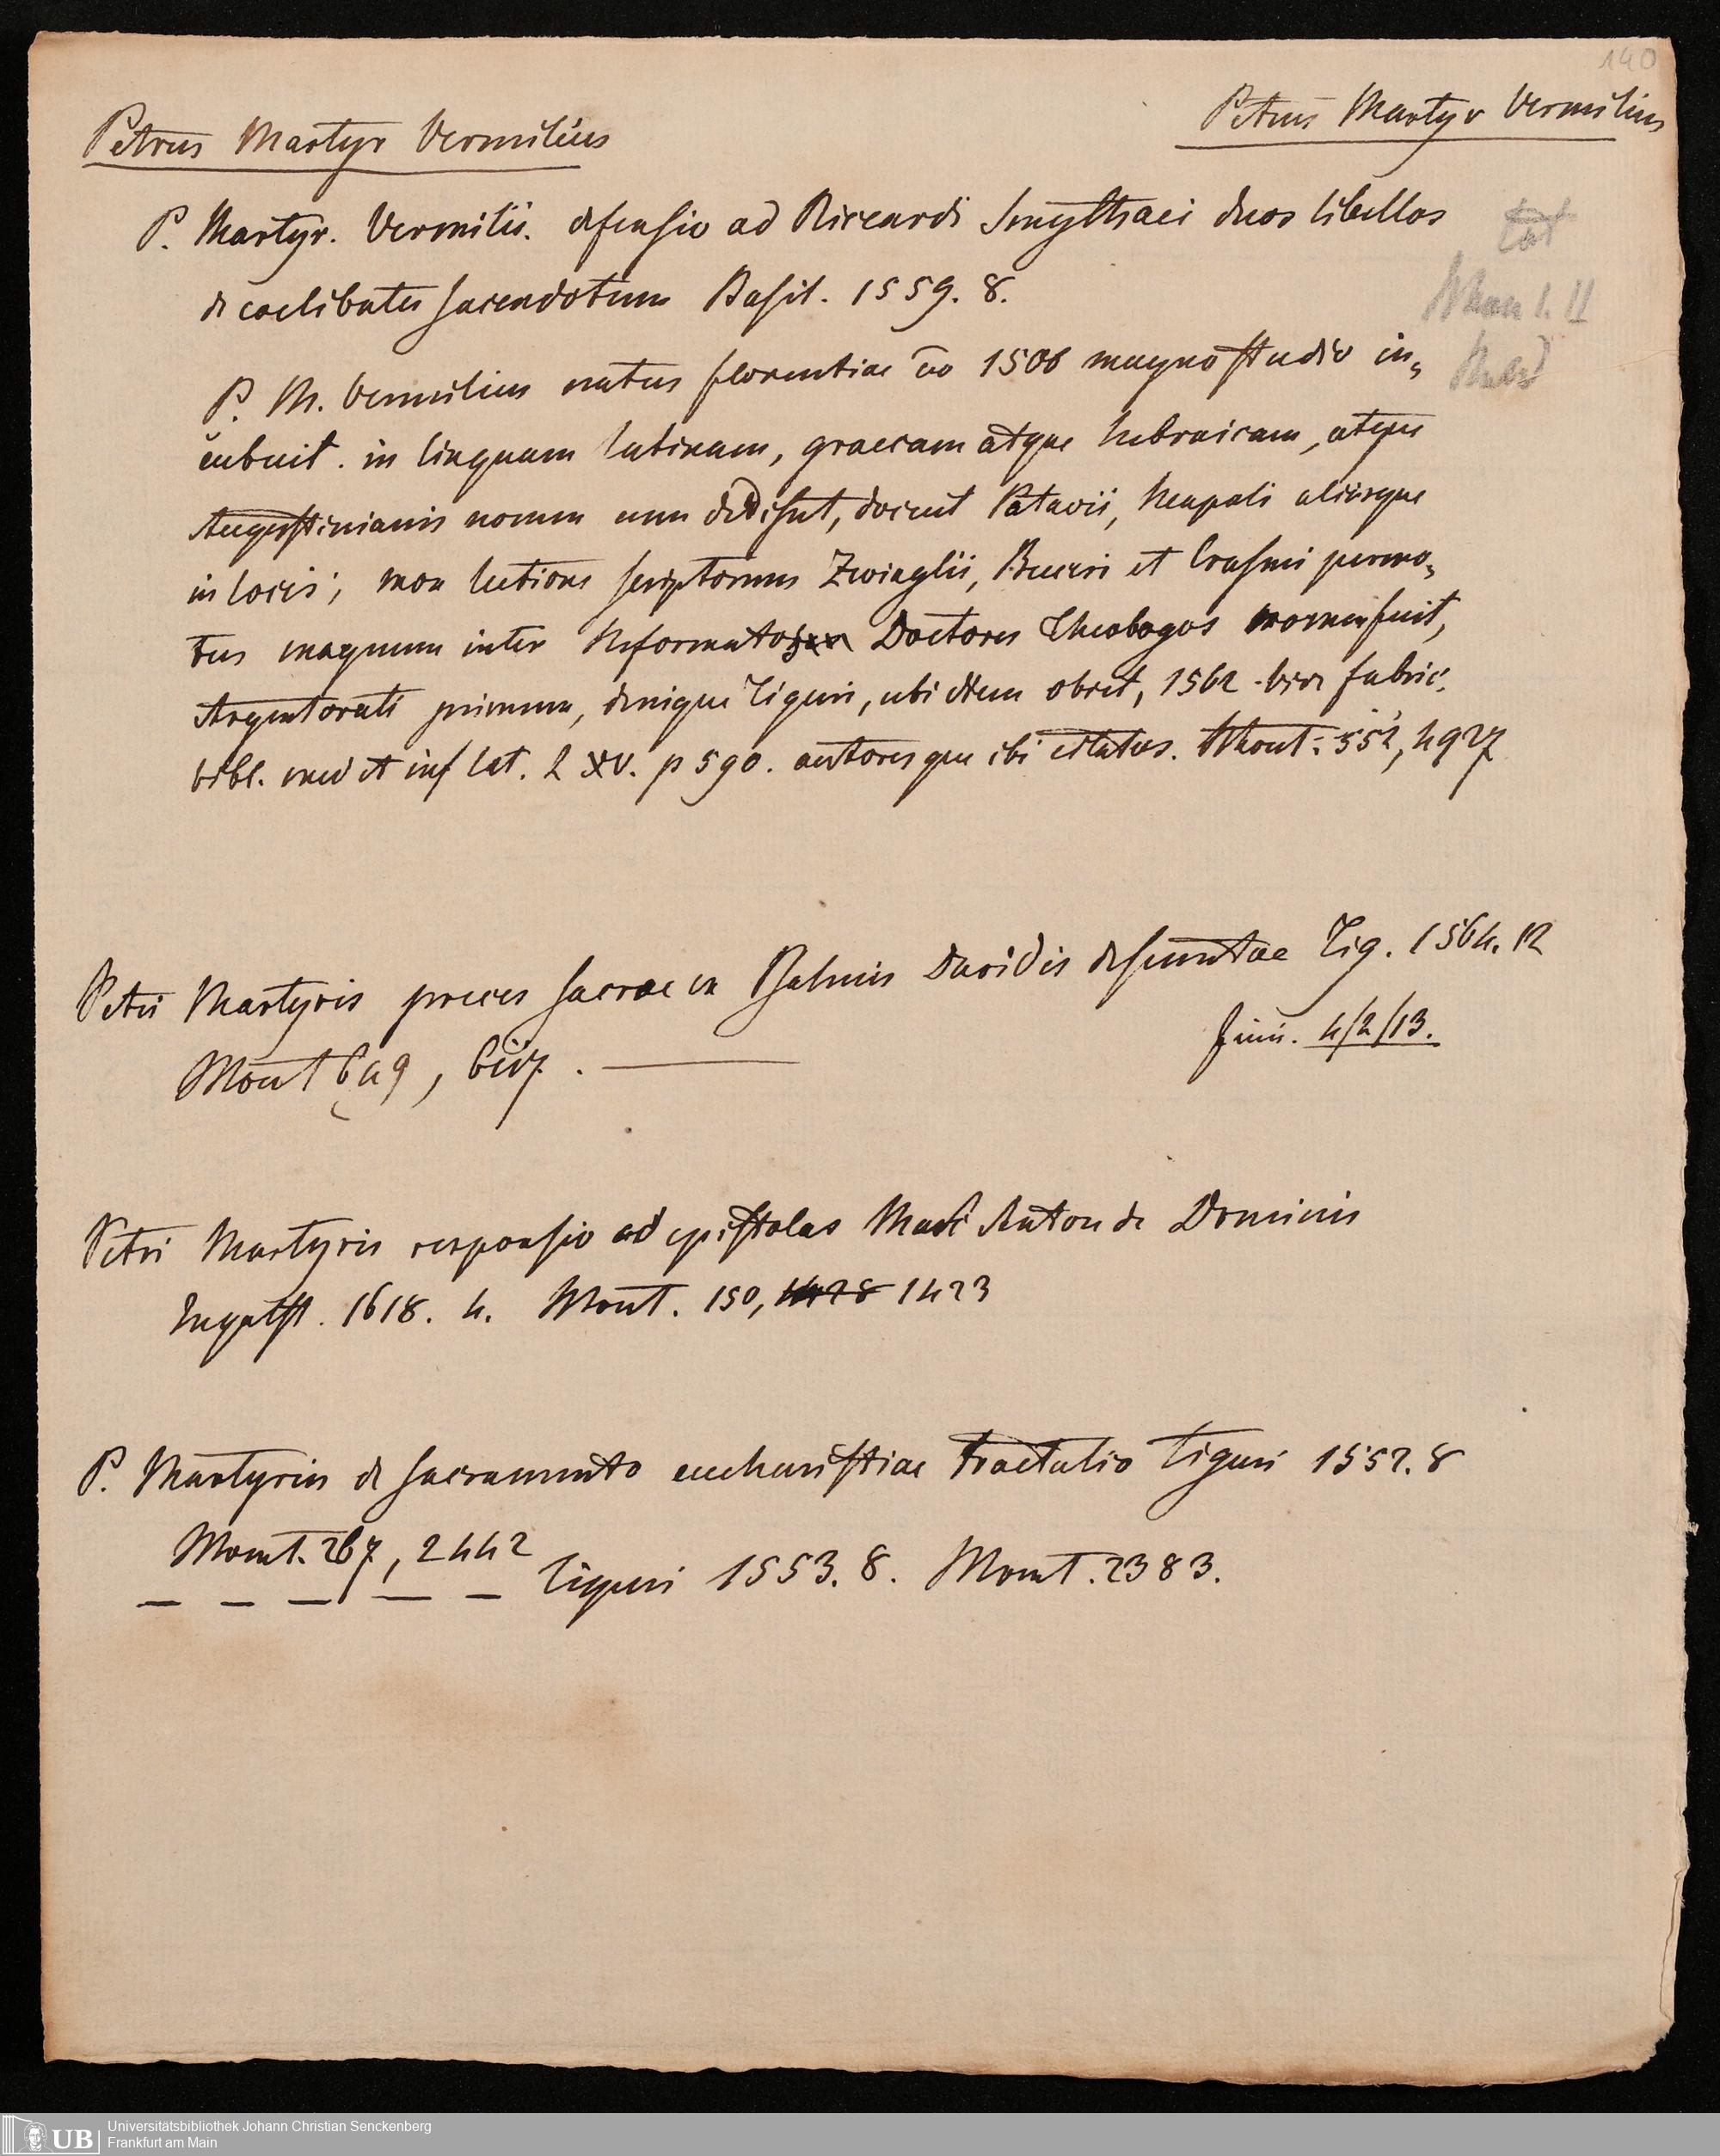 140
Petrus Martyr Vermilius
Petrus Martyr Vermilius
P. Martyr. Vermilii. defensio ad Riccardi Smythaei duos libellos
de coelibatu sacerdotum Basil. 1559. 8.
P. M. Vermilius natus florentiae ao 1500 magno studio in„
cubuit. in linguam latinam, graecam atque hebraicam, atque
Augustinianis nomen cum dedisset, docuit Patavii, Neapoli aliisque
in locis; mox lectione scriptorum Zwinglii, Buceri et Erasmi permo„
tus magnum inter Reformatos Doctores Theologos nomen fuit,
Argentorati primum, denique Tiguri, ubi diem obiit, 1562 vide fabric.
bibl. med et inf lat. L XV. p 590. autoresque ibi citatos. Mont: 552, 4927
Petri Martyris preces sacrae ex Psalmis Davidis desumtae Tig. 1564. 12
Mont 649,
4/2/13.
Petri Martyris responsio ad epistolas Marci Anton de Dominis
Ingolst. 1618. 4. Mont. 150, 1423
P. Martyris de sacramento eucharistiae tractatio Tiguri 1552. 8
Mont. 267, 2442
— — — — — Tiguri 1553. 8. Mont. 2383.
UB Universitätsbibliothek Johann Christian Senckenberg
Frankfurt am Main